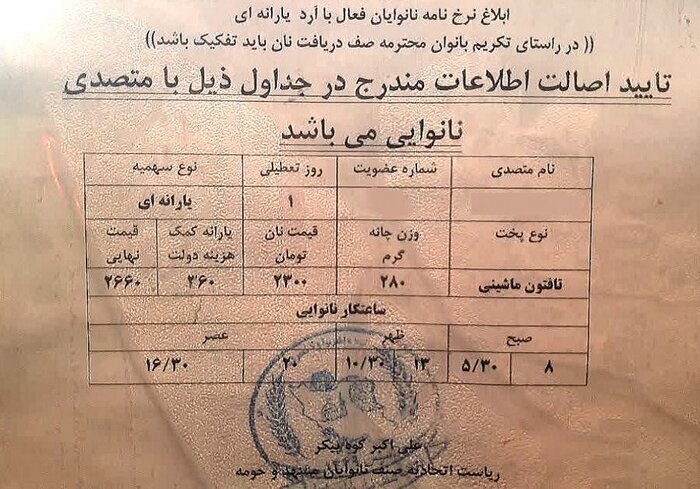 ابلاغ نرخ نامه نانوایان فعال با آرد یارانه ای
(( در راستای تکریم بانوان محترمه صف دریافت نان باید تفکیک باشد))
تایید اصالت اطلاعات مندرج در جداول ذیل با متصدی
نانوایی می باشد
نام متصدی شماره عضویت روز تعطیلی نوع سهمیه
۱ یارانه ای
نوع پخت وزن چانه گرم قیمت نان تومان یارانه کمک هزینه دولت قیمت نهایی
تافتون ماشینی ۲۸۰ ۲۳۰۰ ۳۶۰ ۲۶۶۰
ساعتکار نانوایی
صبح ظهر عصر
۸ ۵/۳۰ ۱۳ ۱۰/۳۰ ۲۰ ۱۶/۳۰
علی اکبر کوه پیکر
ریاست اتحادیه صنف نانوایان مشهد و حومه